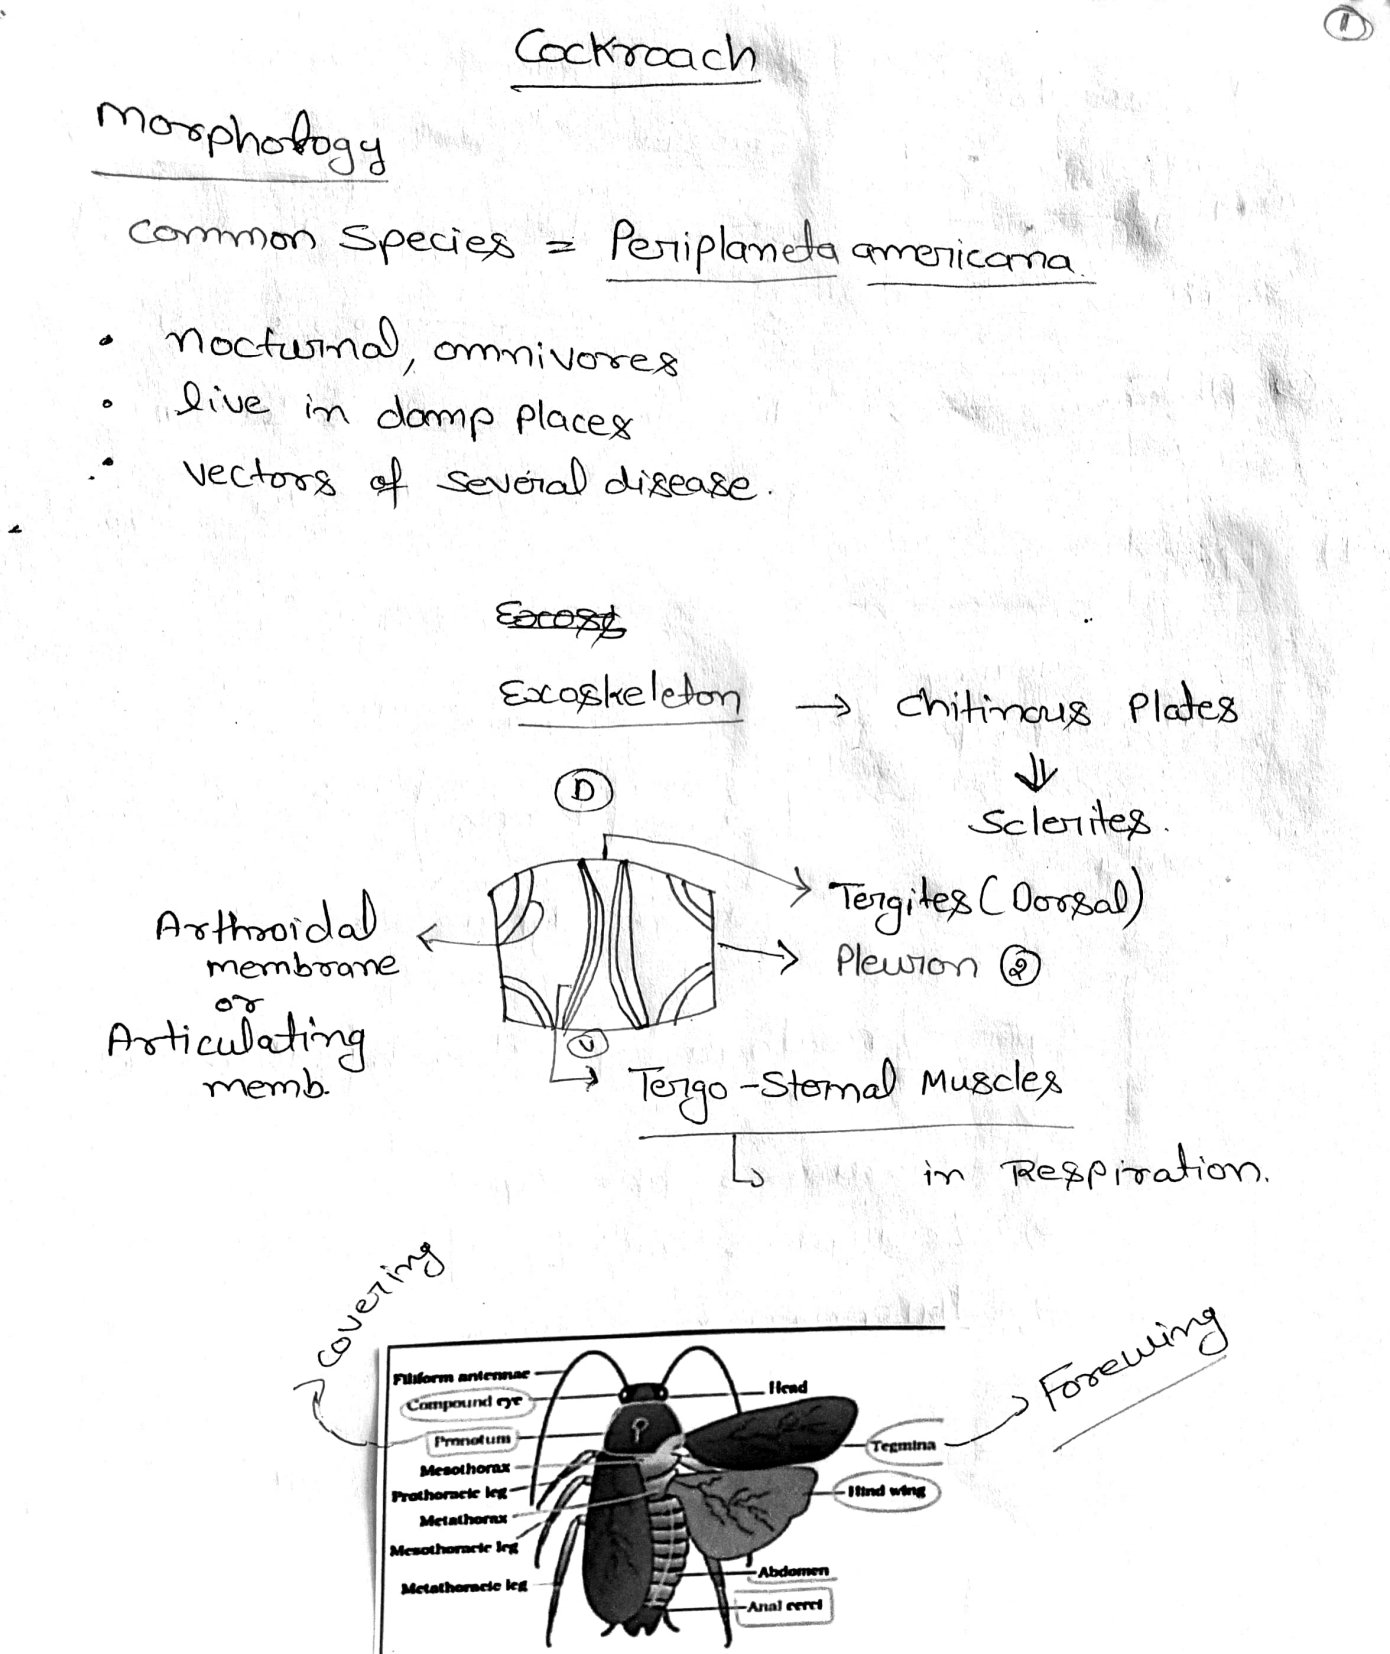 11
Cockroach
Morphology
Common Species = Periplaneta americana.
• Nocturnal, omnivores
• live in damp places
• vectors of several disease.
Exosk
Exoskeleton → Chitinous Plates
⇓
Sclerites.
D
Tergites (Dorsal)
Arthroidal
membrane
or
Articulating
memb.
Pleuron 2
V
Tergo-Sternal Muscles
in Respiration.
Covering
Forewing
Filiform antennae
Head
Compound eye
Pronotum
Tegmina
Mesothorax
Prothoracic leg
Hind wing
Metathorax
Mesothoracic leg
Abdomen
Metathoracic leg
Anal cerci